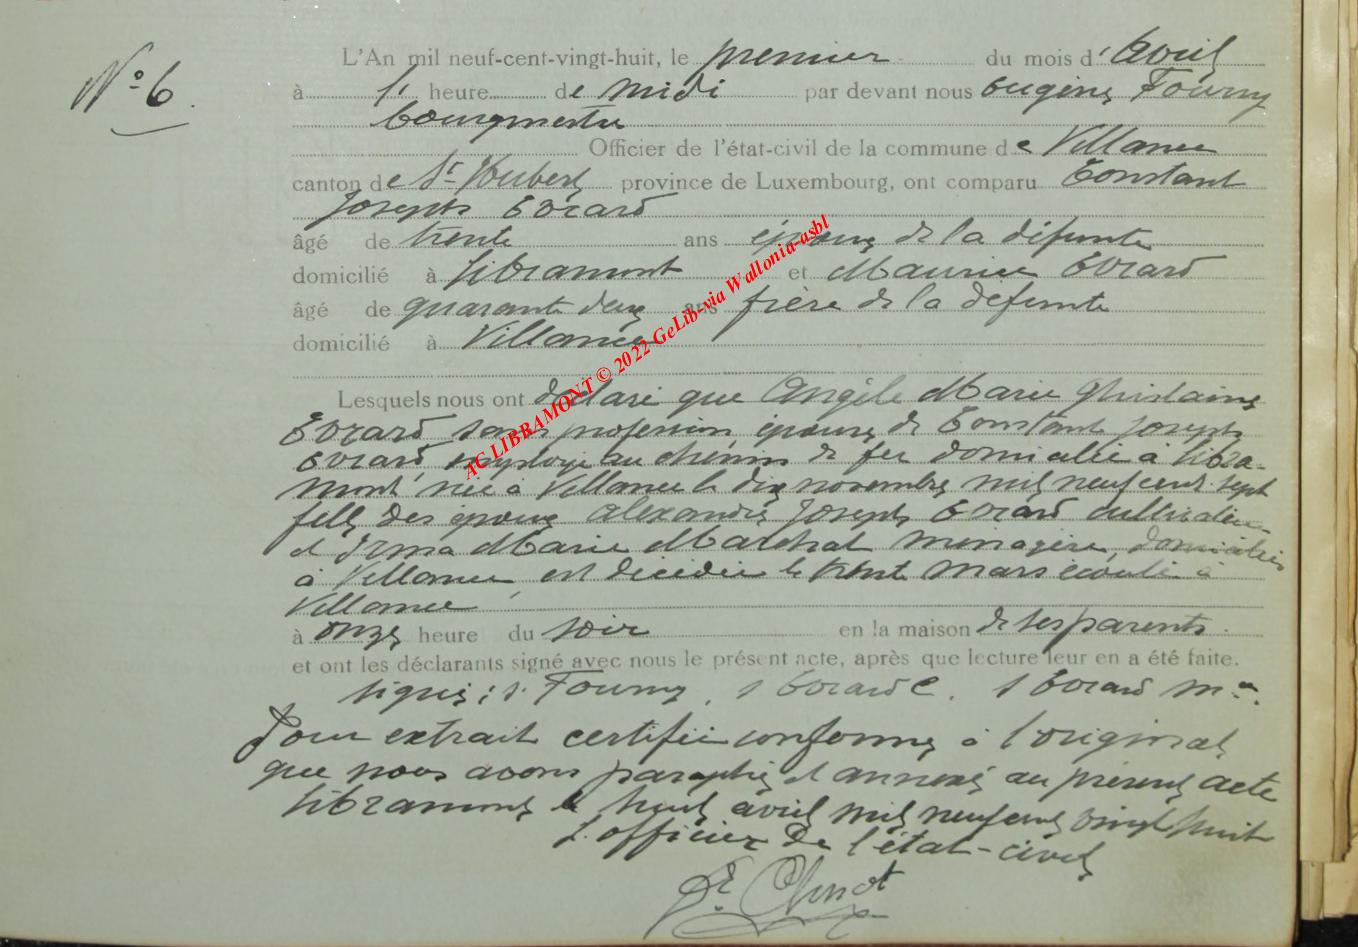 N° 6
L'An mil neuf-cent-vingt-huit, le premier du mois d'Avril
à 1 heure de midi par devant nous Eugène Fourny
bourgmestre
Officier de l'état-civil de la commune de Villance
canton de St Hubert province de Luxembourg, ont comparu Constant
Joseph Evrard
âgé de trente ans époux de la défunte
domicilié à Libramont et Maurice Evrard
âgé de quarante deux ans frère de la défunte
domicilié à Villance
Lesquels nous ont déclaré que Angèle Marie Ghislaine
Evrard, sans profession épouse de Constant Joseph
Evrard, employé au chemin de fer domiciliée à Libra-
mont, née à Villance le dix novembre mil neuf cent sept
fille des époux Alexandre Joseph Evrard cultivateur
et Irma Marie Maréchal ménagère, domiciliés
à Villance, est décédée le trente mars écoulé à
Villance
à onze heure du soir en la maison de ses parents
et ont les déclarants signé avec nous le présent acte, après que lecture leur en a été faite.
signé: s. Fourny, s Evrard C. s Evrard M
Pour extrait certifié conforme à l'original
que nous avons paraphé et annexé au présent acte
Libramont le huit avril mil neuf cent vingt huit
L'officier de l'état-civil
AC LIBRAMONT © 2022 GeLib-via Wallonia-asbl